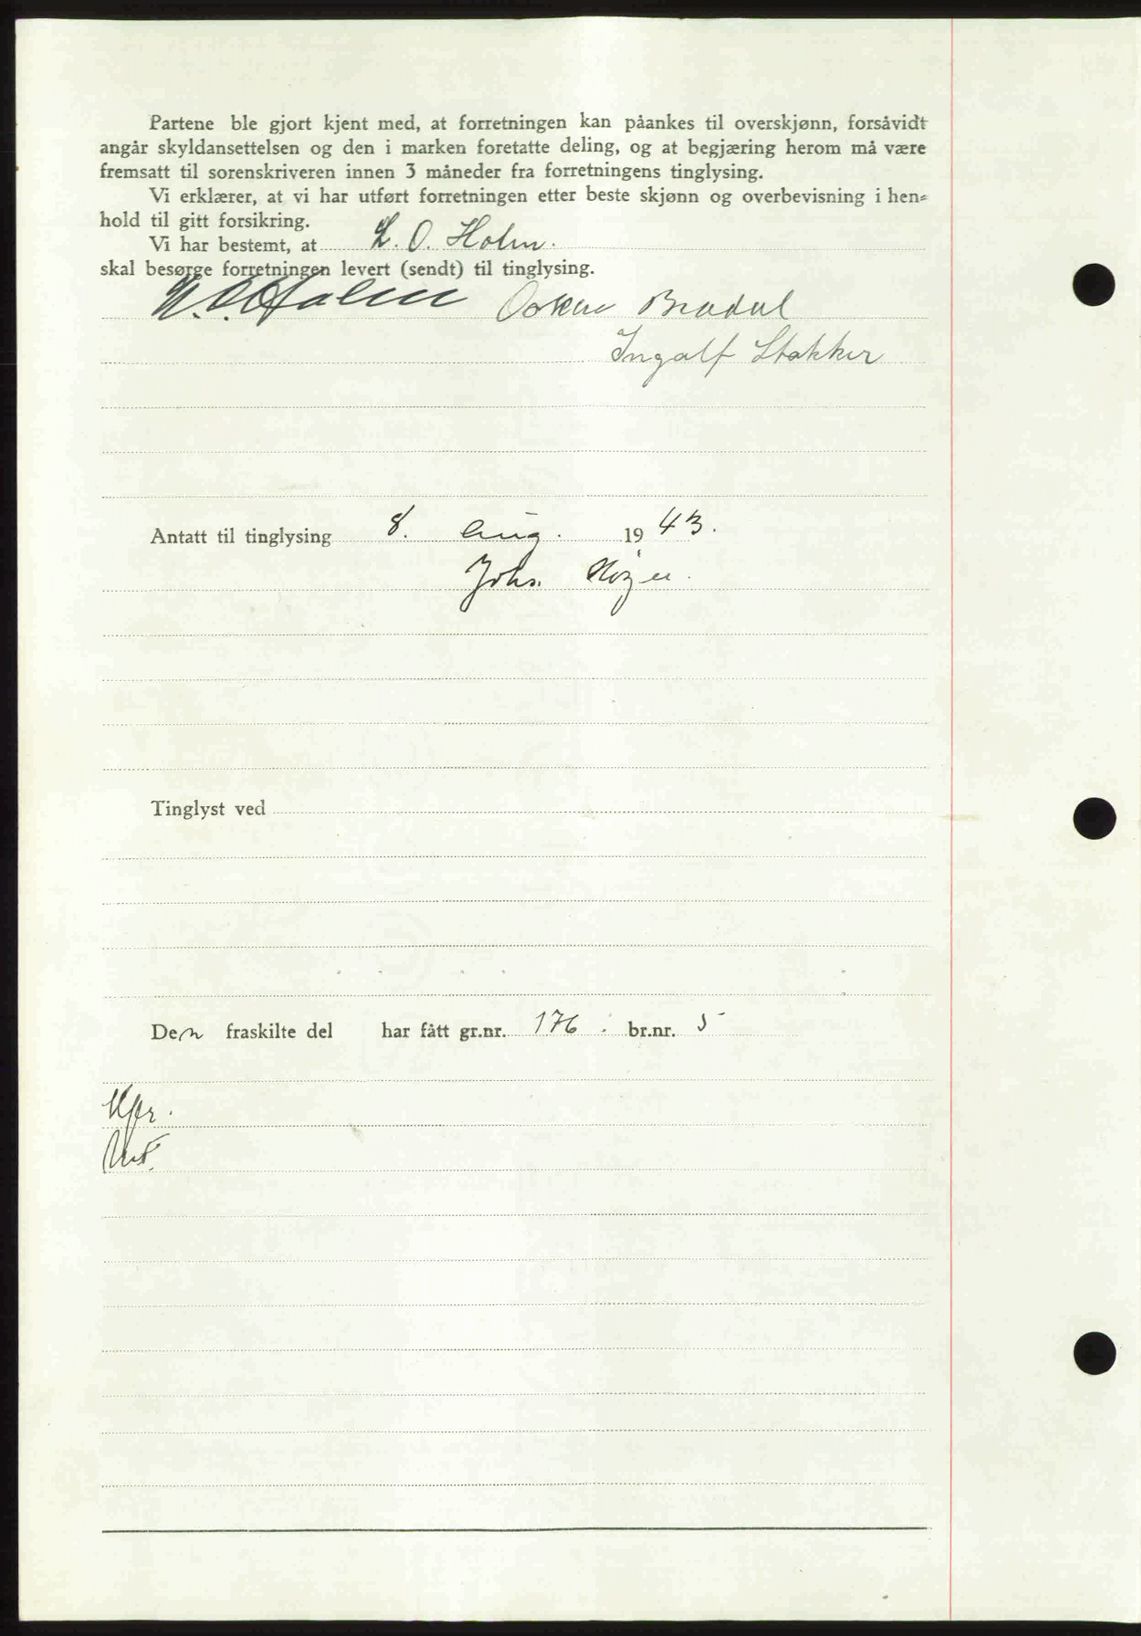 Partene ble gjort kjent med, at forretningen kan påankes til overskjønn, forsåvidt
angår skyldansettelsen og den i marken foretatte deling, og at begjæring herom må være
fremsatt til sorenskriveren innen 3 måneder fra forretningens tinglysing.
Vi erklærer, at vi har utført forretningen etter beste skjønn og overbevisning i hen-
hold til gitt forsikring.
Vi har bestemt, at L. O. Holm.
skal besørge forretningen levert (sendt) til tinglysing.
L. O. Holm Oskar Bradal
Ingolf Stokker
Antatt til tinglysing 8. aug. 1943.
Johs.
Tinglyst ved
Den fraskilte del har fått gr.nr. 176. br.nr. 5